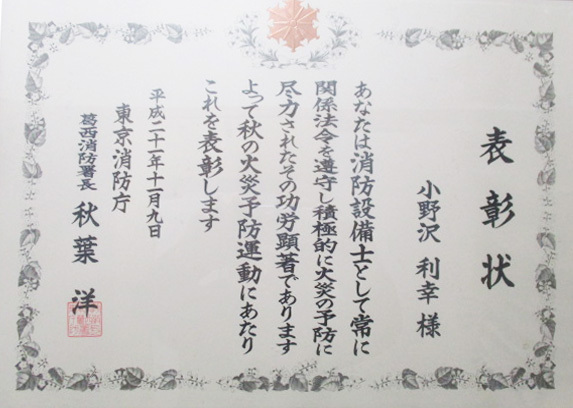 表彰状
小野沢 利幸 様
あなたは消防設備士として常に
関係法令を遵守し積極的に火災の予防に
尽力されたその功労顕著であります
よって秋の火災予防運動にあたり
これを表彰します
平成二十一年十一月九日
東京消防庁
葛西消防署長 秋葉 洋